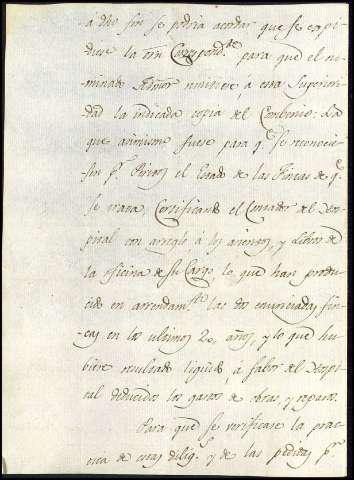 á dho fin se podria acordar que se expi-
diese la orn Correspond.te para que el no-
minado Señor remitiese á esta Superiori-
dad la indicada copia del Combenio: La
que asimismo fuese para q.e se reconocie-
sen p.r Peritos el Estado de las Fincas de q.e
se trata, Certificando el Contador del Hos-
pital con arreglo á los asientos, y Libros de
la oficina de su Cargo, lo que han produ-
cido en arrendam.to las dos enunciadas fin-
cas en los ultimos 20, años, y lo que hu-
biere resultado liquido, á fabor del Hospi-
tal deducidos los gastos de obras, y reparos.
Para que se verificase la prac-
tica de estas dilig.s y de las pedidas p.r